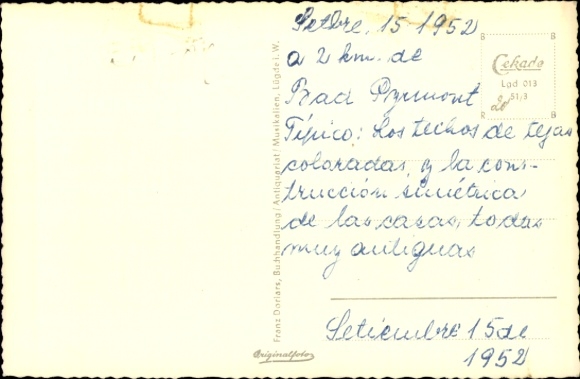 Setbre, 15 1952
a 2 km. de
Bad Pyrmont
Típico: Los techos de tejas
coloradas, y la cons-
trucción simétrica
de las casas, todas
muy antiguas
Setiembre 15 de
1952
Cekade
Lgd 013
51/3
20
B
B
R
B
Franz Doriars, Buchhandlung / Antiquariat / Musikalien, Lügde i. W.
Originalfoto